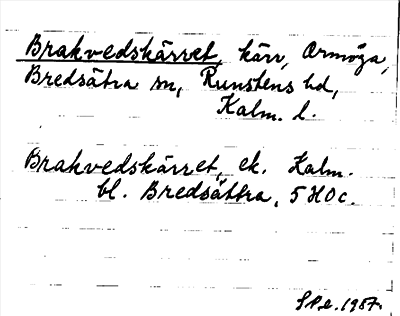 Brakvedskärret, kärr, Ormöga,
Bredsätra sn, Runstens hd,
Kalm. l.
Brakvedskärret, ek. Kalm.
bl. Bredsättra, 5H0c.
1987.